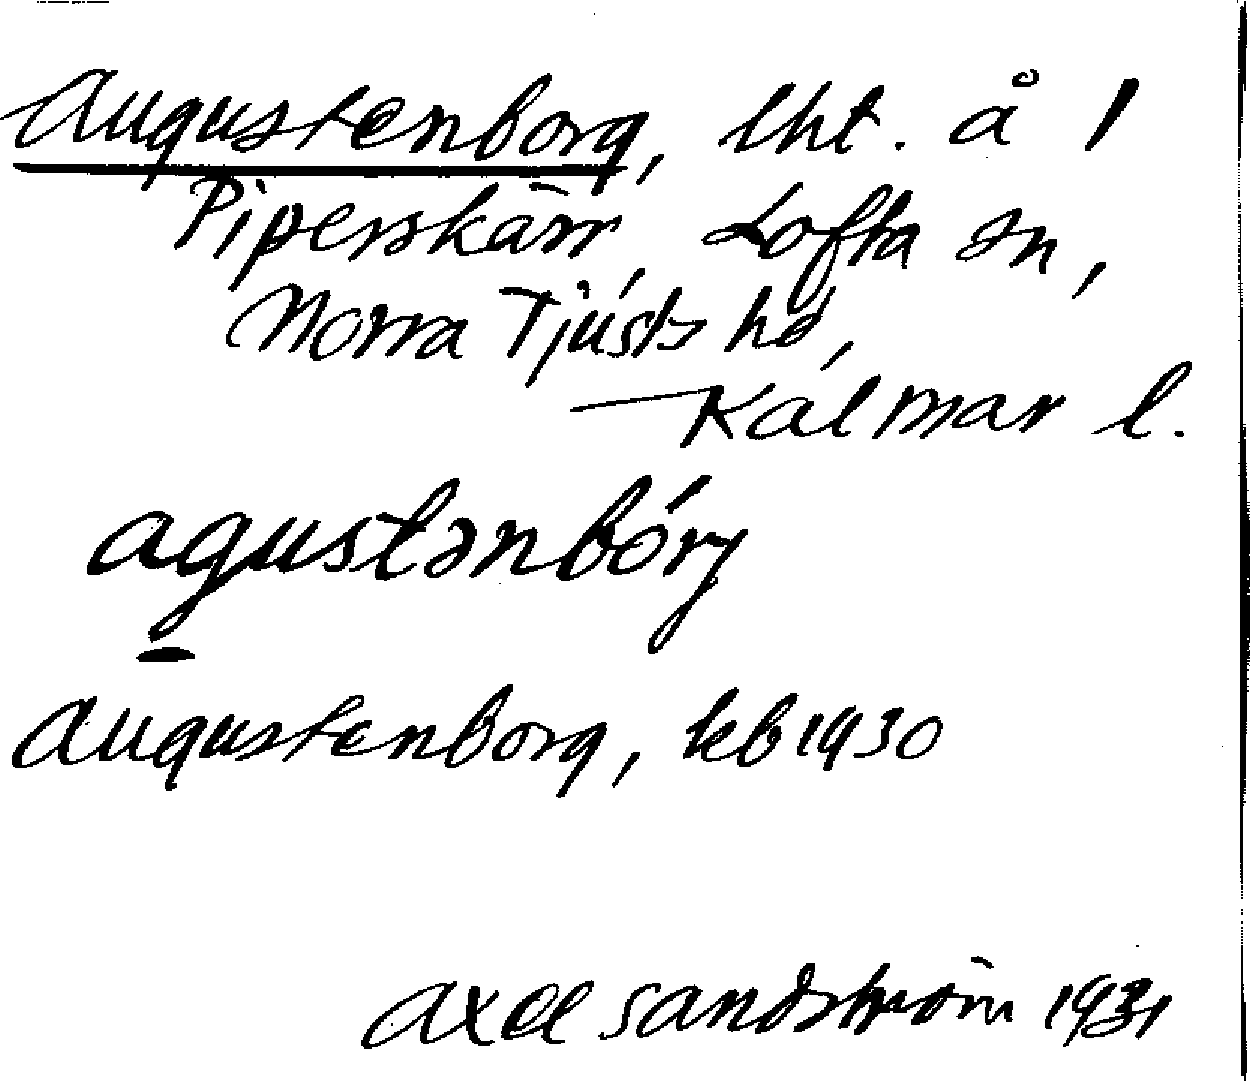 Augustenborg, lht. å 1
Piperskärr, Lofta sn,
Norra Tjústs hd,
Kalmar l.
agustənbórj
Augustenborg, kb 1930
Axel Sandström 1931